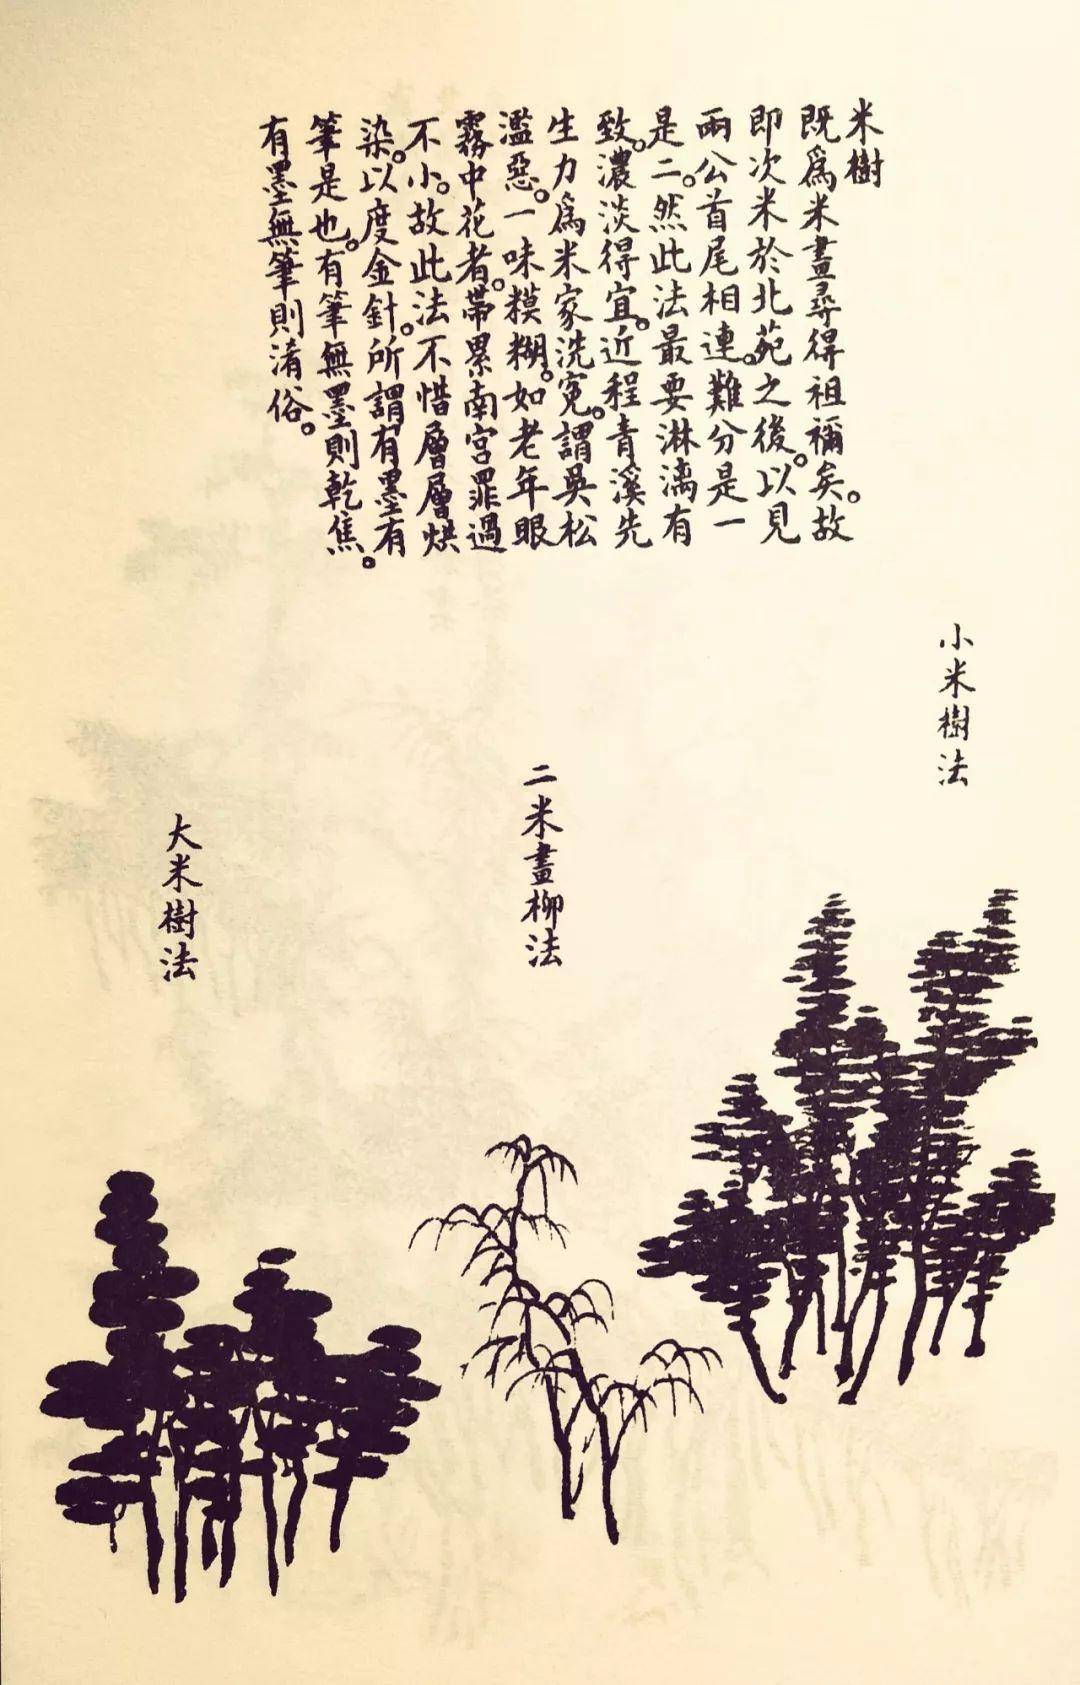 米樹
既爲米畫尋得祖禰矣。故
即次米於北苑之後。以見
兩公首尾相連。難分是一
是二。然此法最要淋漓有
致。濃淡得宜。近程青溪先
生力爲米家洗寃。謂吳松
濫惡。一味糢糊。如老年眼
霧中花者。帶累南宮罪過
不小。故此法不惜層層烘
染。以度金針。所謂有墨有
筆是也。有筆無墨則乾焦。
有墨無筆則淆俗。
小米樹法
二米畫柳法
大米樹法